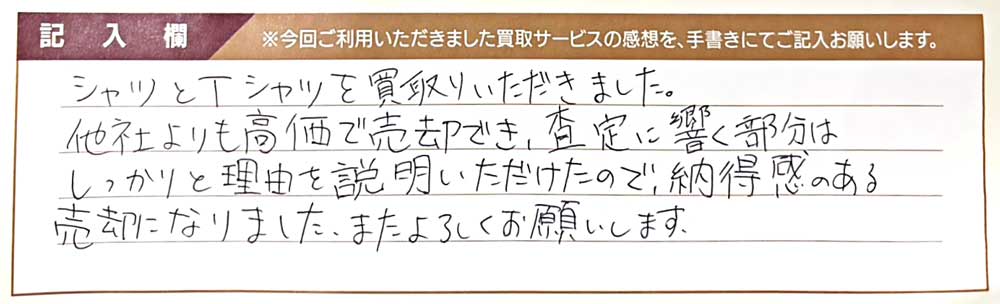 記入欄
※今回ご利用いただきました買取サービスの感想を、手書きにてご記入お願いします。
シャツとTシャツを買取りいただきました。
他社よりも高価で売却でき、査定に響く部分は
しっかりと理由を説明いただけたので、納得感のある
売却になりました。またよろしくお願いします。